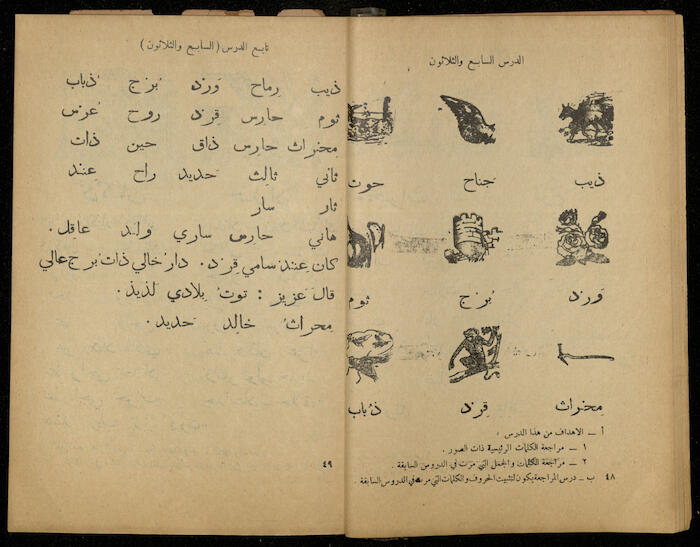 الدرس السابع والثلاثون
ذيب جناح حوت
ورد برج ثوم
محراث قرد ذباب
أ ـ الاهداف من هذا الدرس :
١ ـ مراجعة الكلمات الرئيسية ذات الصور .
٢ ـ مراجعة الكلمات والجمل التي مرت في الدروس السابقة .
ب ـ درس المراجعة يكون لتثبيت الحروف والكلمات التي مرت في الدروس السابقة .
٤٨
تابع الدرس ( السابع والثلاثون )
ذيب رماح ورد برج ذباب
ثوم حارس قرد روح عرس
محراث حارس ذاق حين ذات
ثاني ثالث حديد راح عند
ثار سار
هاني حارس ساري والد عاقل .
كان عند سامي قرد . دار خالي ذات برج عالي
قال عزيز : توت بلادي لذيذ .
محراث خالد حديد .
٤٩